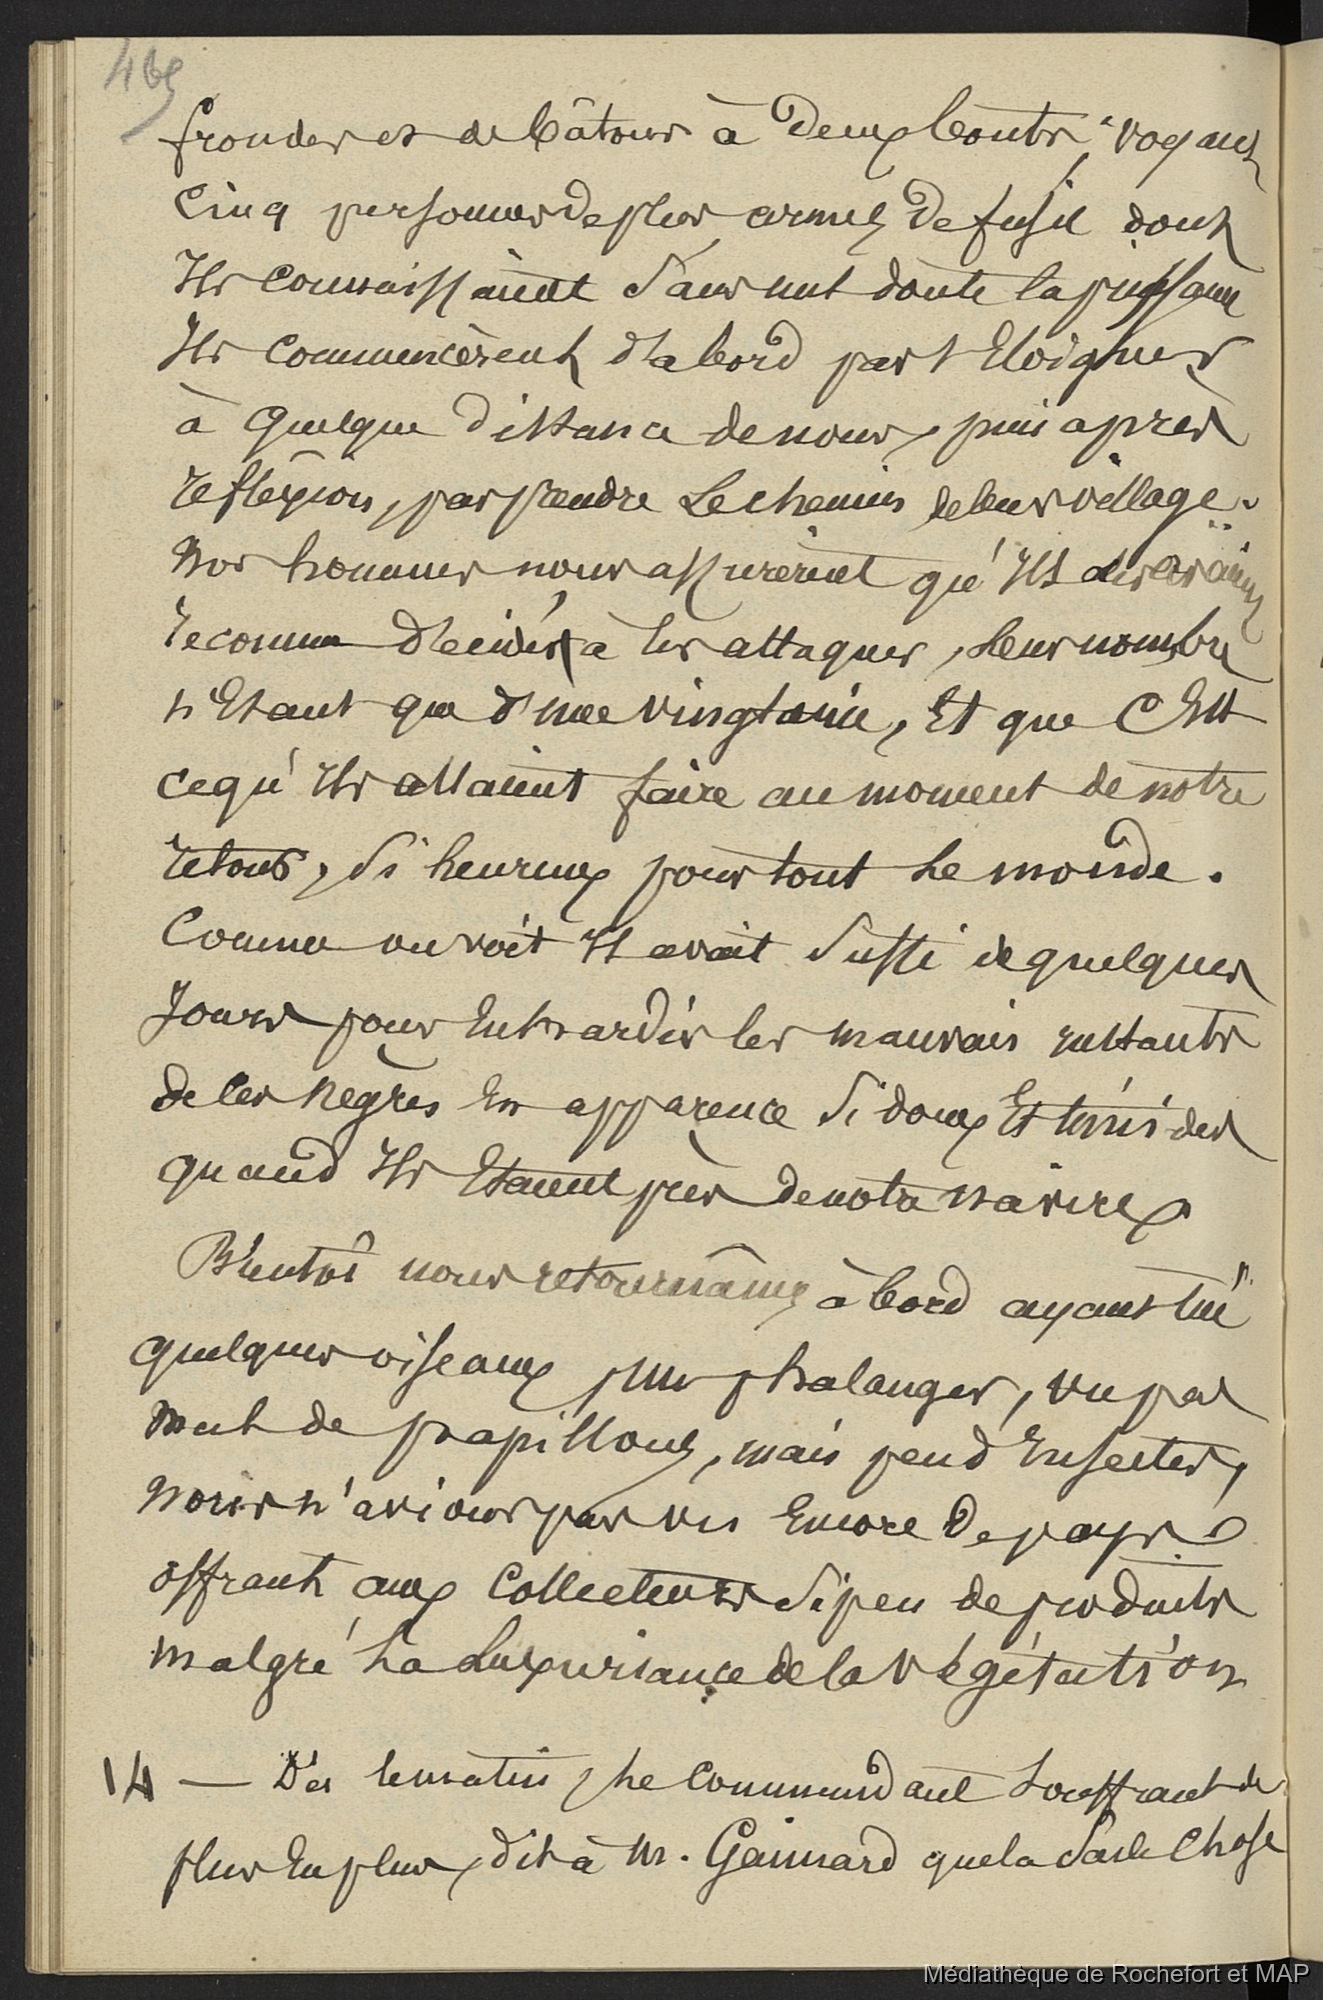 465
frondes et de bâtons à deux bouts, voyant
Cinq personnes de plus armés de fusil dont
Ils connaissaient sans nul doute la puissance
Ils commencèrent d'abord par s'Eloigner
à quelque distance de nous, puis après
réflexion, par prendre Le chemin de leur village.
Nos hommes nous assurèrent qu'Ils les avaient
reconnu décidés à les attaquer, leur nombre
n'Etant que d'une vingtaine, Et que C'Est
ce qu'Ils allaient faire au moment de notre
retour, si heureux pour tout Le monde.
Comme on voit Il avait suffi de quelques
Jours pour Enhardir les mauvais instants
de ces Nègres En apparence si doux Et timides
quand Ils Etaient près de notre navire.
Bientôt nous retournâmes à bord ayant tué
quelques oiseaux, un phalanger, vu pas
mal de papillons, mais peu d'Insectes,
Nous n'avions pas vu Encore De pays
offrant aux Collecteurs si peu de produits
malgré La Luxuriance de la végétation
14 — Dès le matin, Le Commandant souffrant de
plus En plus, dit à M. Gaimard que la seule Chose
Médiathèque de Rochefort et MAP